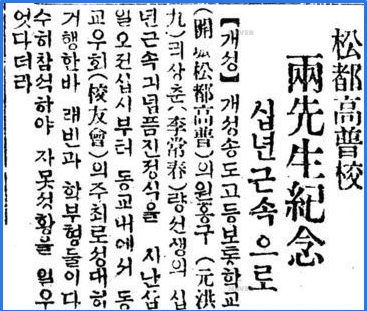 松都高普校
兩先生紀念
십년근속으로
【개성】 개성송도고등보통학교
(開城松都高普)의원홍구(元洪
九)리상춘(李常春)량선생의 십
년근속긔념품진정식을 지난삼
일오전십시부터 동교내에서 동
교우회(校友會)의주최로성대히
거행한바 래빈과 학부형들이다
수히참석하야 자못성황을 일우
엇다더라